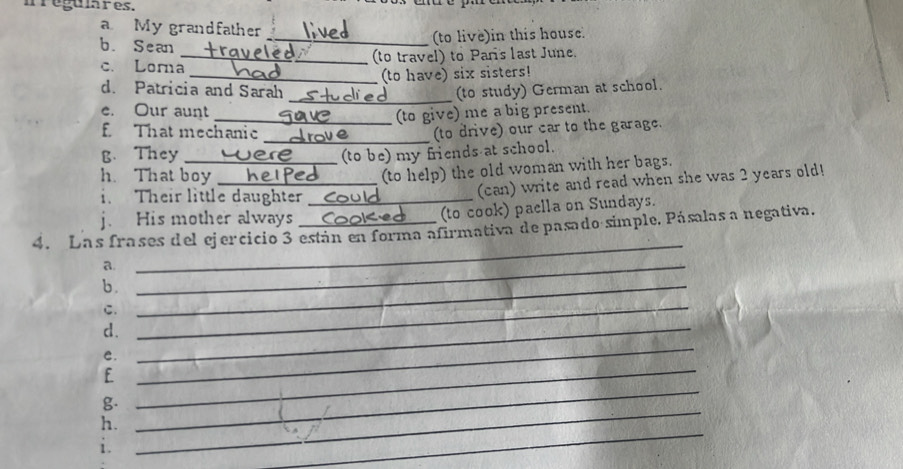 irregulares.
a. My grandfather lived (to live)in this house.
b. Sean traveled (to travel) to Paris last June.
c. Lorna had (to have) six sisters!
d. Patricia and Sarah studied (to study) German at school.
e. Our aunt gave (to give) me a big present.
f. That mechanic drove (to drive) our car to the garage.
g. They were (to be) my friends at school.
h. That boy helped (to help) the old woman with her bags.
i. Their little daughter could (can) write and read when she was 2 years old!
j. His mother always cooked (to cook) paella on Sundays.
4. Las frases del ejercicio 3 están en forma afirmativa de pasado simple. Pásalas a negativa.
a.
b.
c.
d.
e.
f.
g.
h.
i.